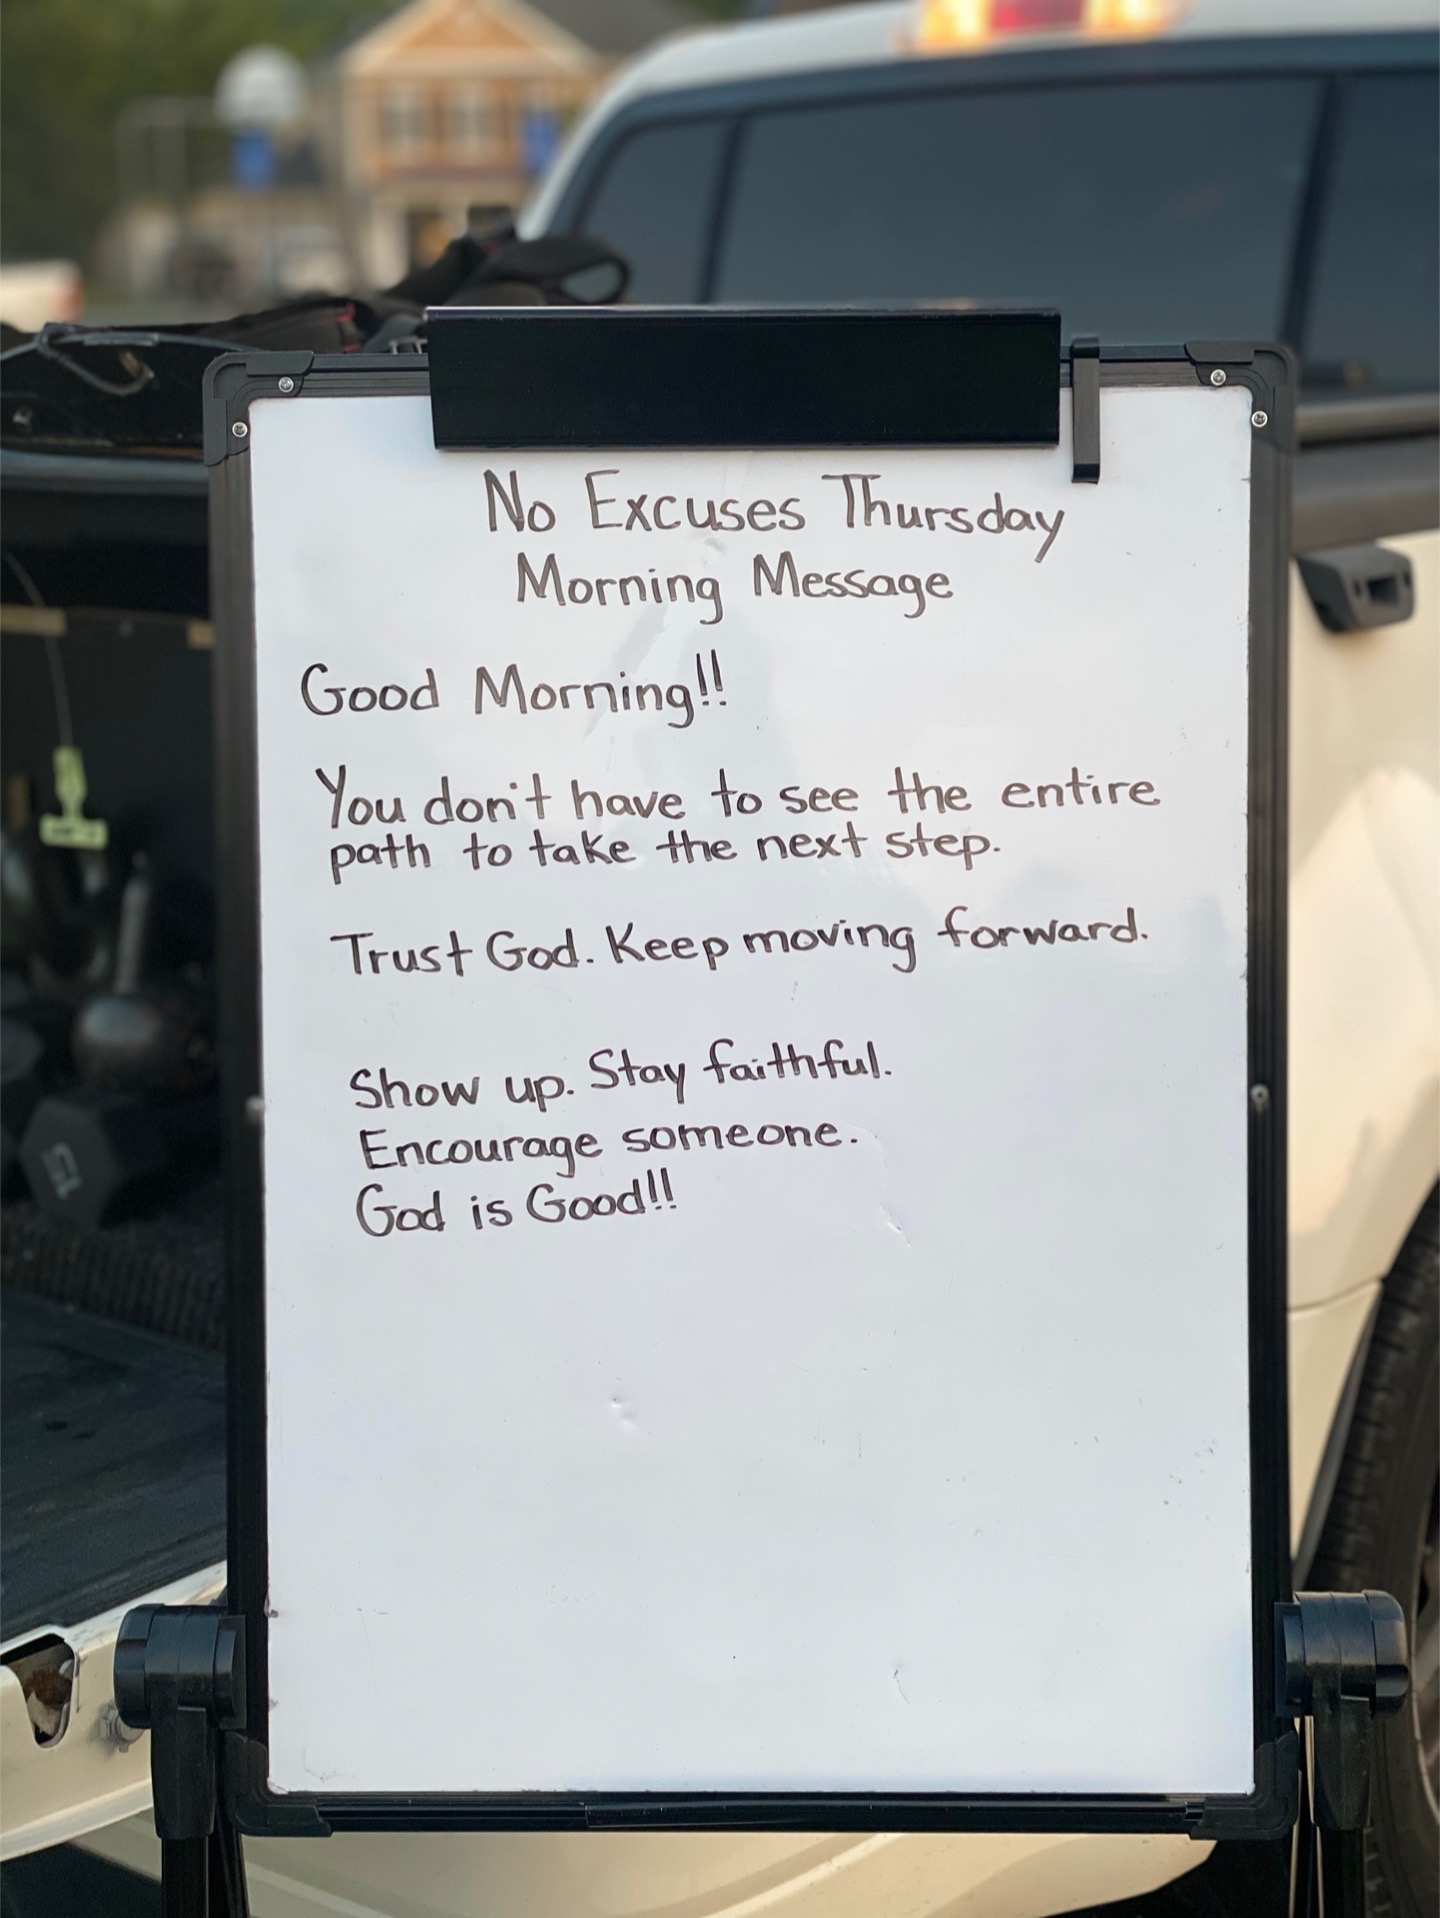 No Excuses Thursday
Morning Message
Good Morning!!
You don't have to see the entire
path to take the next step.
Trust God. Keep moving forward.
Show up. Stay faithful.
Encourage someone.
God is Good!!